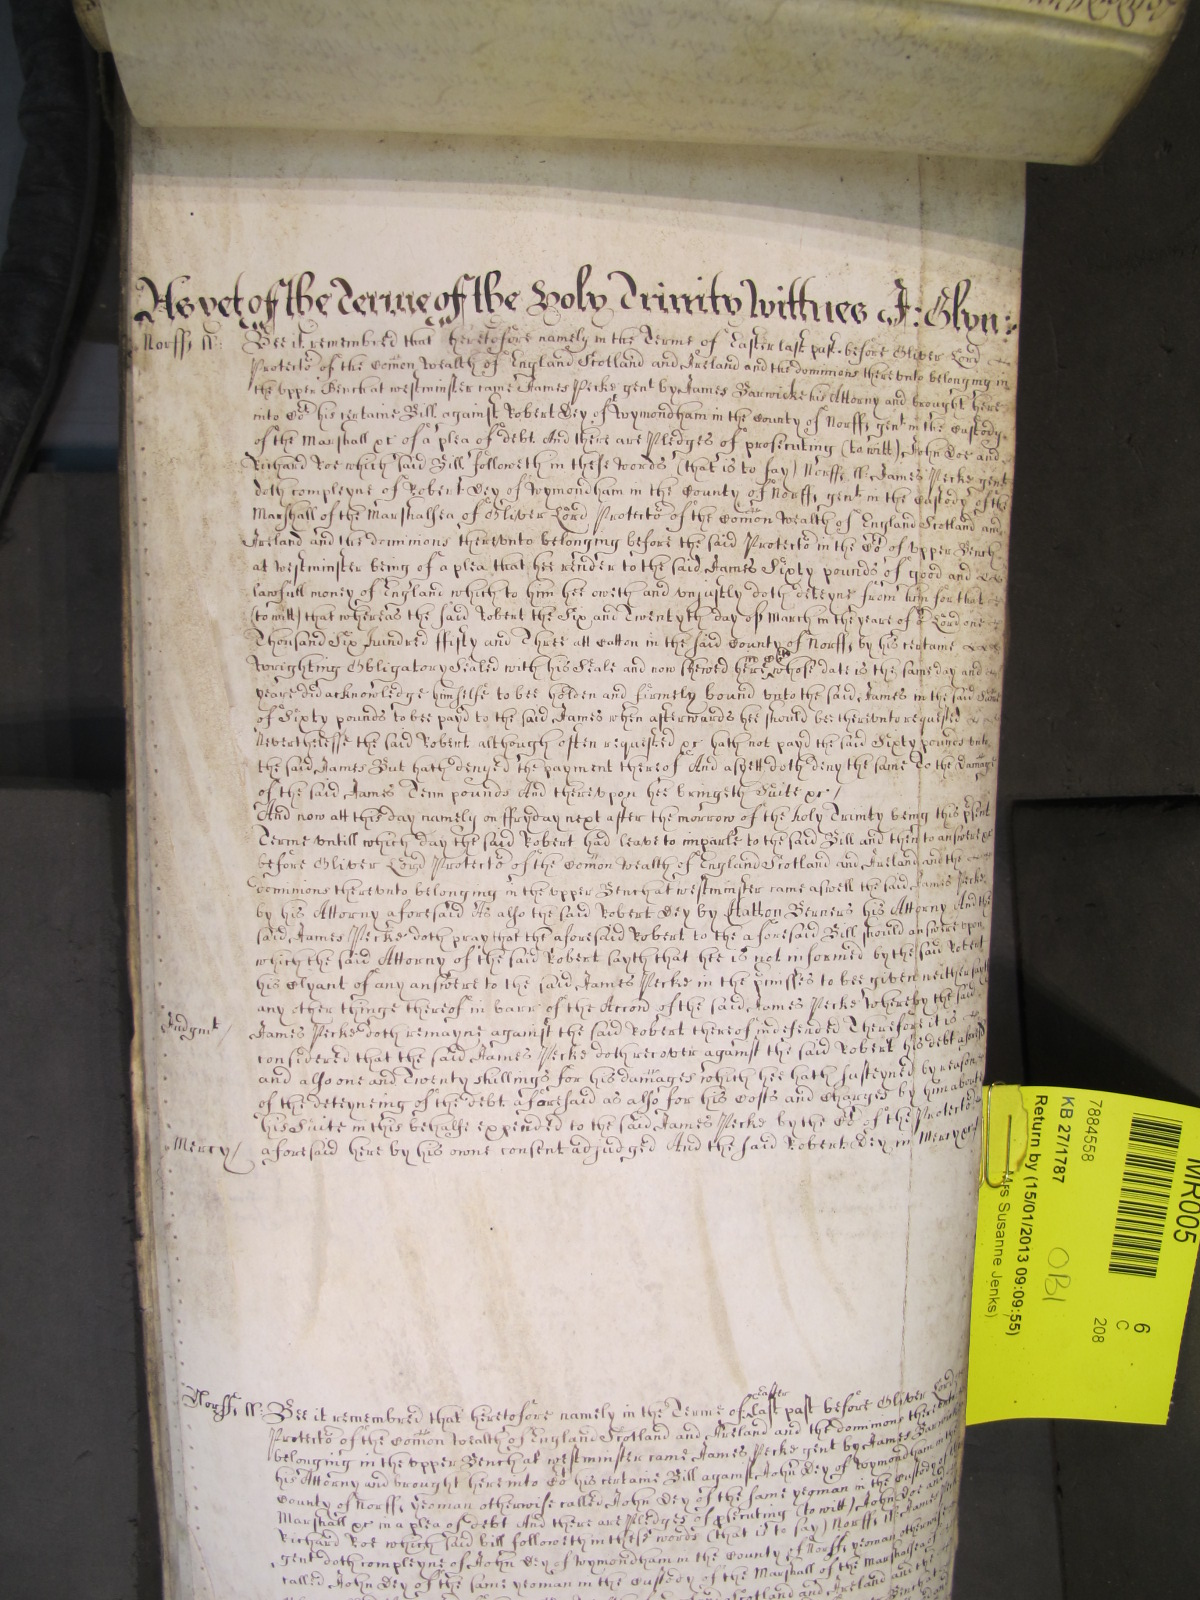 As yet of the Terme of the Holy Trinity Wittnes J: Glyn:
Norff, ss: Bee it remembred that heretofore namely in the Terme of Easter last past before Oliver Lord
Protector of the Comon Wealth of England Scotland and Ireland and the dominions therevnto belonging in
the vpper Bench at Westminster came James Pecke gent by James Barwicke his Attorny and brought here
into Cot his certaine Bill against Robert Dey of Wymondham in the County of Norff, gent in the Custody
of the Marshall xc of a plea of debt And there are Pledges of prosecuting (to witt) John Doe and
Richard Roe which said Bill followeth in these words (that is to say) Norff, ss: James Pecke gent
doth compleyne of Robert Dey of Wymondham in the County of Norff, gent in the Custody of the
Marshall of the Marshalsea of Oliver Lord Protector of the Comon Wealth of England Scotland and
Ireland and the dominions therevnto belonging before the said Protector in the Cot of vpper Bench
at Westminster being of a plea that hee render to the said James Sixty pounds of good and
lawfull money of England which to him hee oweth and vnjustly doth deteyne from him for that
(to witt) that whereas the said Robert the Six and Twentyth day of March in the yeare of or Lord one
Thousand Six hundred ffifty and Three att Catton in the said County of Norff, by his certaine
Wrighting Obligatory Sealed with his Seale and now shewed here in Cot whose date is the same day and
yeare did acknowledge himselfe to bee holden and firmely bound vnto the said James in the said Same
of Sixty pounds to bee payd to the said James when afterwards hee should be therevnto requested
Neverthelesse the said Robert although often requested xc hath not payd the said Sixty pounds vnto
the said James But hath denyed the payment thereof And as yett doth deny the same To the damage
of the said James Tenn pounds And therevpon hee bringeth Suite xc /
And now att this day namely on ffryday next after the morrow of the holy Trinity being this psent
Terme vntill which day the said Robert had leave to imparle to the said Bill and then to answere xc
before Oliver Lord Protector of the Comon Wealth of England Scotland and Ireland and the
dominions therevnto belonging in the vpper Bench at Westminster came aswell the said James Pecke
by his Attorny aforesaid As also the said Robert Dey by Hatton Berners his Attorny And the
said James Pecke doth pray that the aforesaid Robert to the aforesaid Bill should answere vpon
which the said Attorny of the said Robert sayth that hee is not informed by the said Robert
his Clyant of any answere to the said James Pecke in the pmisses to bee given neither sayth
any other thinge thereof in barr of the Accon of the said James Pecke whereby the said
Judgmt / James Pecke doth remayne against the said Robert thereof indefended Therefore it is
considered that the said James Pecke doth recover against the said Robert his debt aforesd
and also one and Twenty shillings for his damages which hee hath susteyned by reason
of the deteyneing of the debt aforesaid as also for his Costs and Charges by him about
his Suite in this behalfe expended to the said James Pecke by the Cot of the Protector
Mercy / aforesaid here by his owne consent adjudged And the said Robert Dey in Mercy xc /
Norff, ss: Bee it remembred that heretofore namely in the Terme of Easter last past before Oliver Lord
Protector of the Comon Wealth of England Scotland and Ireland and the dominions therevnto
belonging in the vpper Bench at Westminster came James Pecke gent by James Barwicke
his Attorny and brought here into Cot his certaine Bill against John Dey of Wymondham in the
County of Norff, yeoman otherwise called John Dey of the same yeoman in the Custody of the
Marshall xc in a plea of debt And there are Pledges of psecuting (to witt) John Doe and
Richard Roe which said bill followeth in these words (that is to say) Norff, ss: James Pecke
gent doth compleyne of John Dey of Wymondham in the County of Norff, yeoman otherwise
called John Dey of the same yeoman in the Custody of the Marshall of the Marshalsea of
Scotland and Ireland and the
MR005
7884558
KB 27/1787
Return by (15/01/2013 09:09:55)
Mrs Susanne Jenks)
OBI
6
C
208